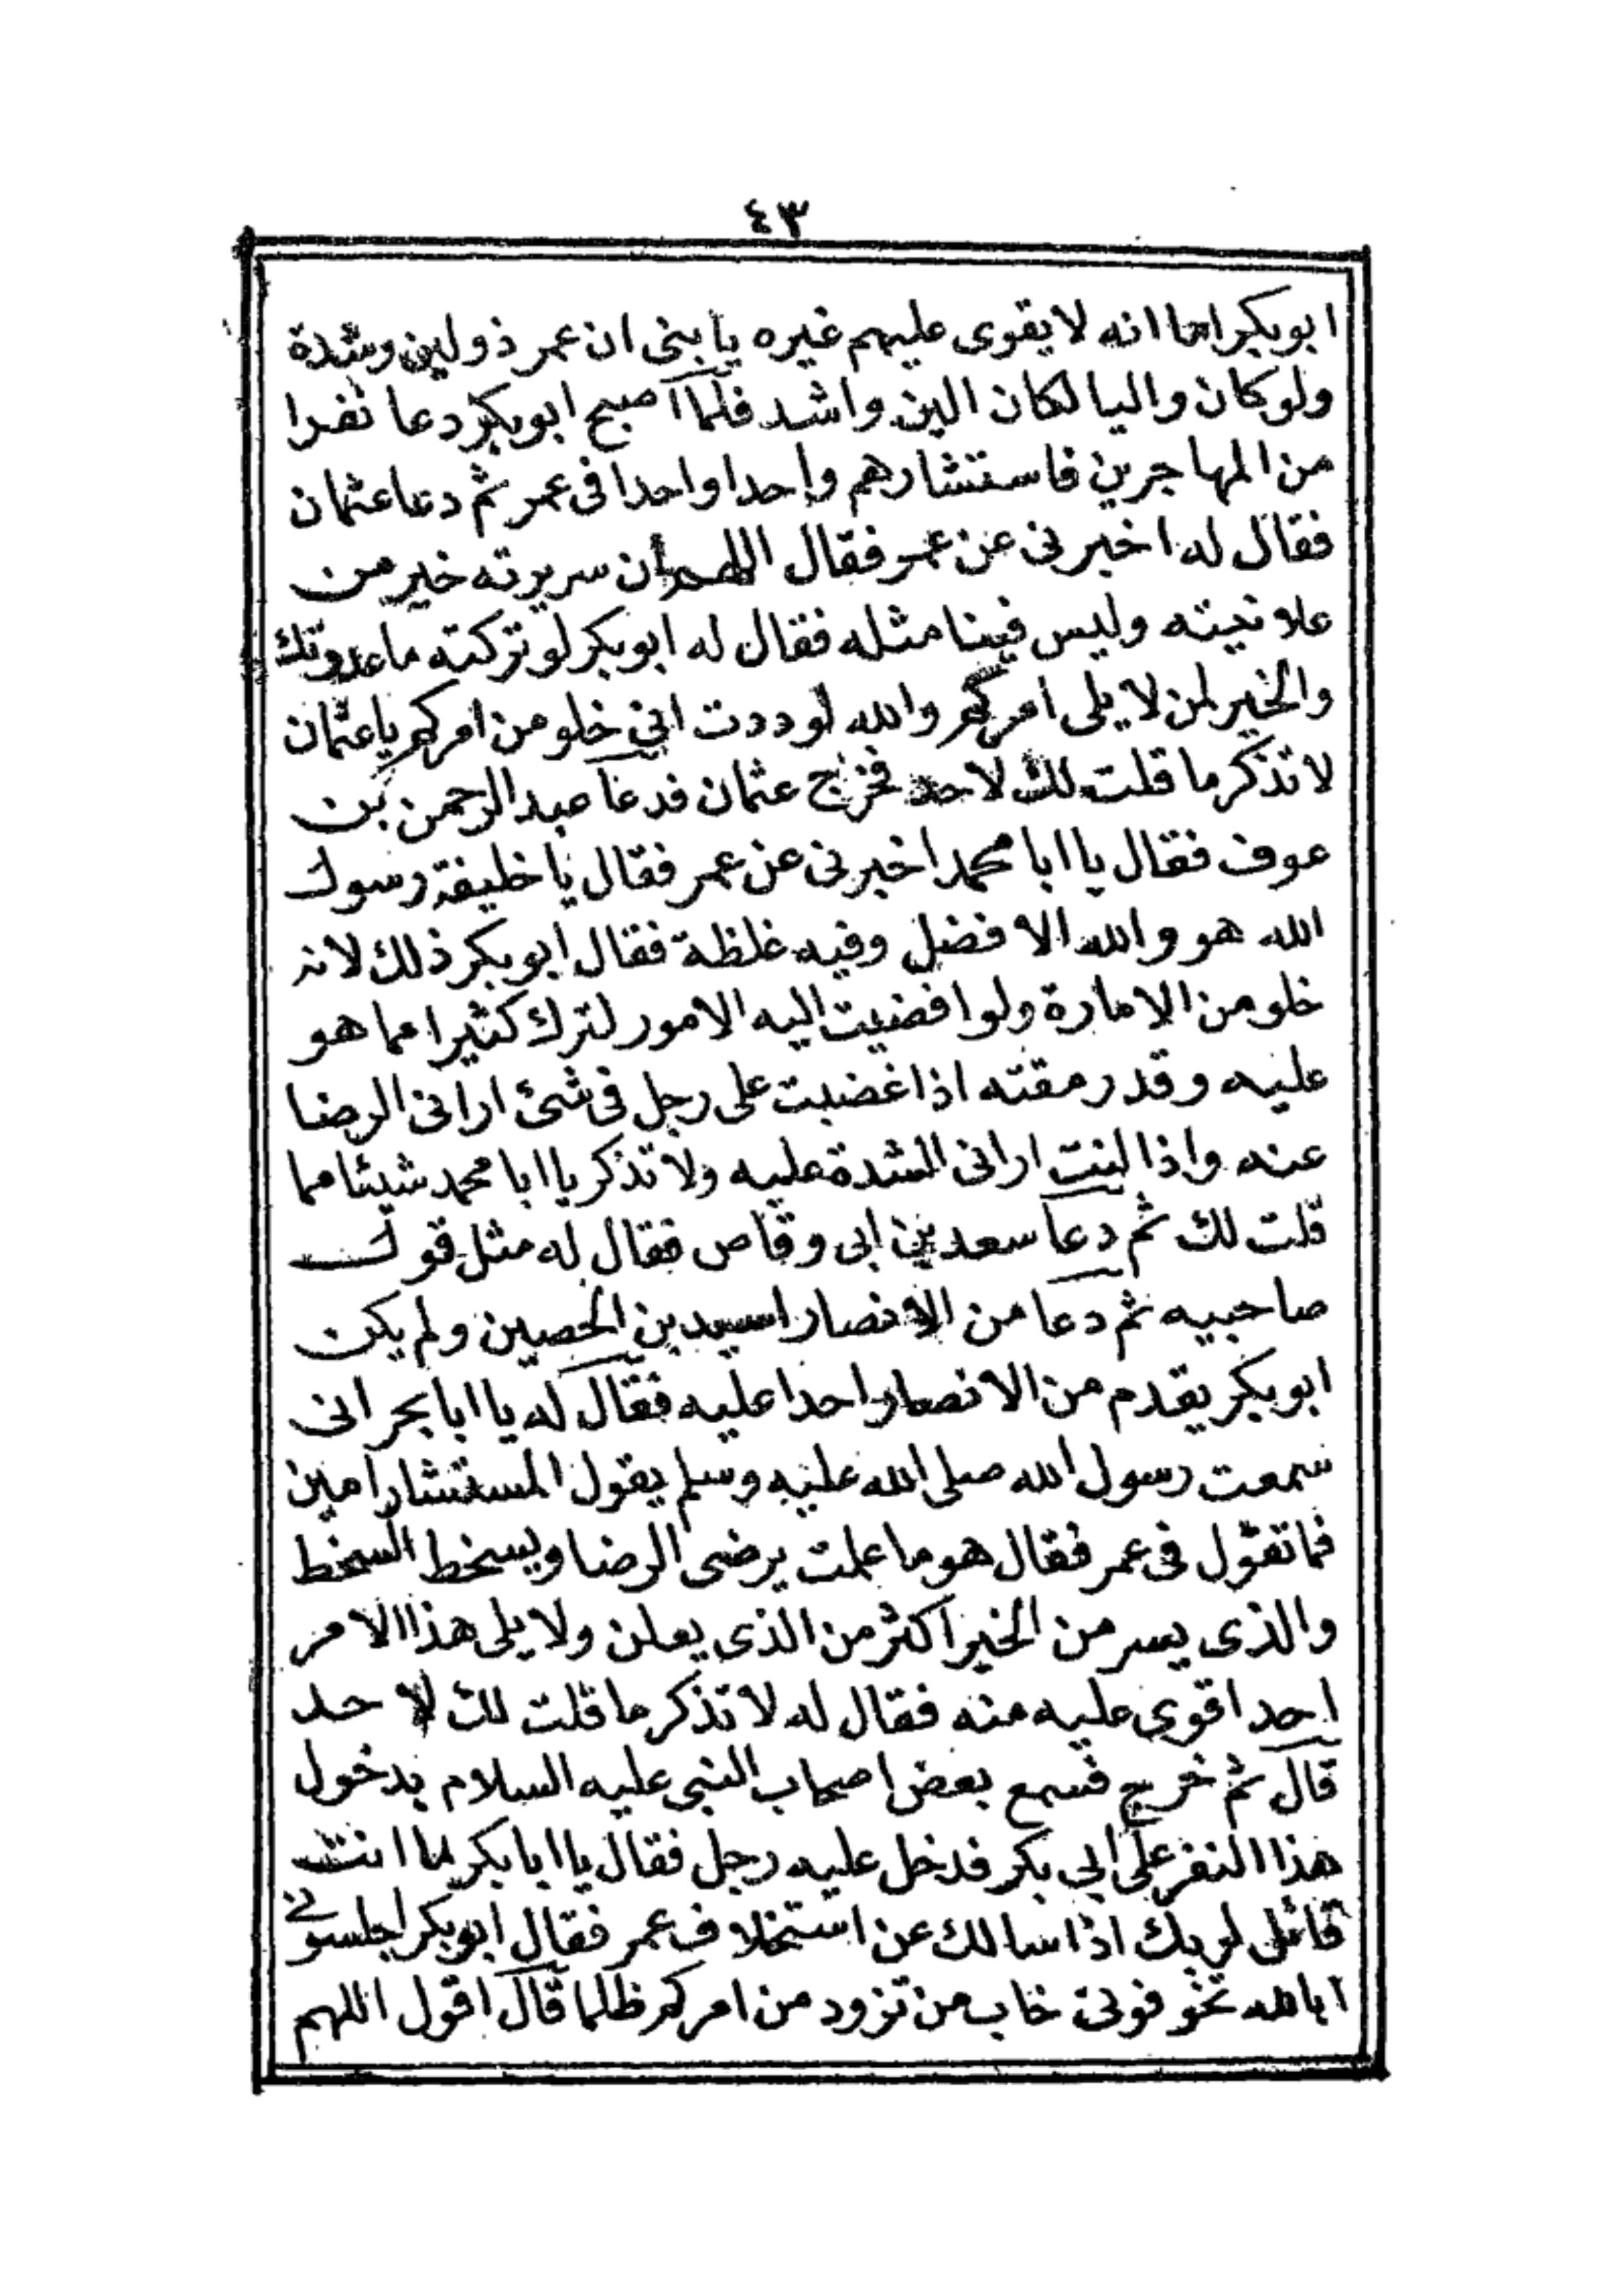 ٤٣
ابوبكر اما انه لا يقوى عليهم غيره يا بنى ان عمر ذولين وشدة
ولوكان واليا لكان الين واشد فلما اصبح ابوبكر دعا نفرا
من المهاجرين فاستشارهم واحدا واحدا فى عمر ثم دعا عثمان
فقال له اخبرنى عن عمر فقال اللهم ان سريرته خير من
علانيته وليس فينا مثله فقال له ابوبكر لو تركته ما عدوتك
والخير لمن لا يلى امركم والله لوددت انى خلو من امركم يا عثمان
لا تذكر ما قلت لك لاحد فخرج عثمان فدعا عبد الرحمن بن
عوف فقال يا ابا محمد اخبرنى عن عمر فقال يا خليفة رسول
الله هو والله الا فضل وفيه غلظة فقال ابوبكر ذلك لانه
خلو من الامارة ولو افضيت اليه الامور لترك كثيرا مما هو
عليه وقد رمقته اذا غضبت على رجل فى شئ ارانى الرضا
عنه واذا لنت ارانى الشدة عليه ولا تذكر يا ابا محمد شيئا مما
قلت لك ثم دعا سعد بن ابى وقاص فقال له مثل قول
صاحبيه ثم دعا من الانصار اسيد بن الحصين ولم يكن
ابوبكر يقدم من الانصار احدا عليه فقال له يا ابا بحر انى
سمعت رسول الله صلى الله عليه وسلم يقول المستشار امين
فما تقول فى عمر فقال هو ما علمت يرضى الرضا ويسخط السخط
والذى يسر من الخير اكثر من الذى يعلن ولا يلى هذا الامر
احد اقوى عليه منه فقال له لا تذكر ما قلت لك لاحد
قال ثم خرج فسمع بعض اصحاب النبى عليه السلام بدخول
هذا النفر على ابى بكر فدخل عليه رجل فقال يا ابا بكر ما انت
قائل لربك اذا سالك عن استخلاف عمر فقال ابوبكر اجلسونى
ابالله تخوفونى خاب من تزود من امركم ظلما قال اقول اللهم